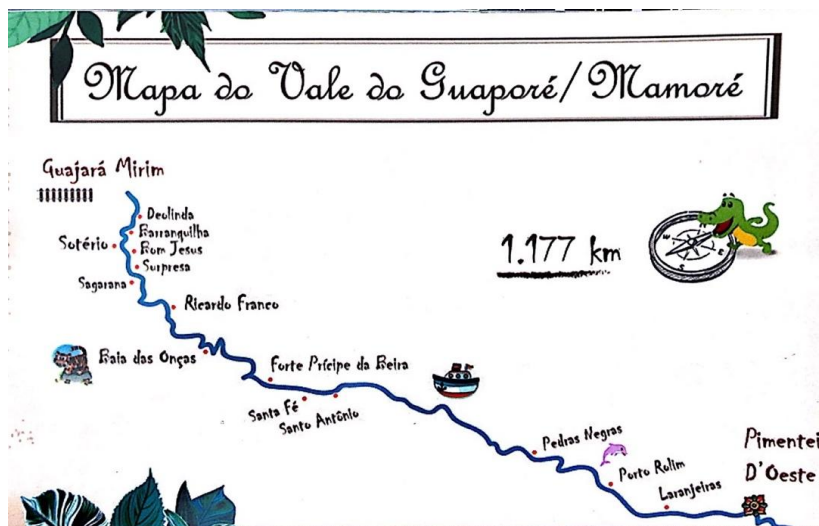 Mapa do Vale do Guaporé/Mamoré
Guajará Mirim
Deolinda
Barranquilha
Sotério
Bom Jesus
Surpresa
Sagarana
Ricardo Franco
1.177 km
W
E
S
Baia das Onças
Forte Prícipe da Beira
Santa Fé
Santo Antônio
Pedras Negras
Porto Rolim
Laranjeiras
Pimentei
D'Oeste